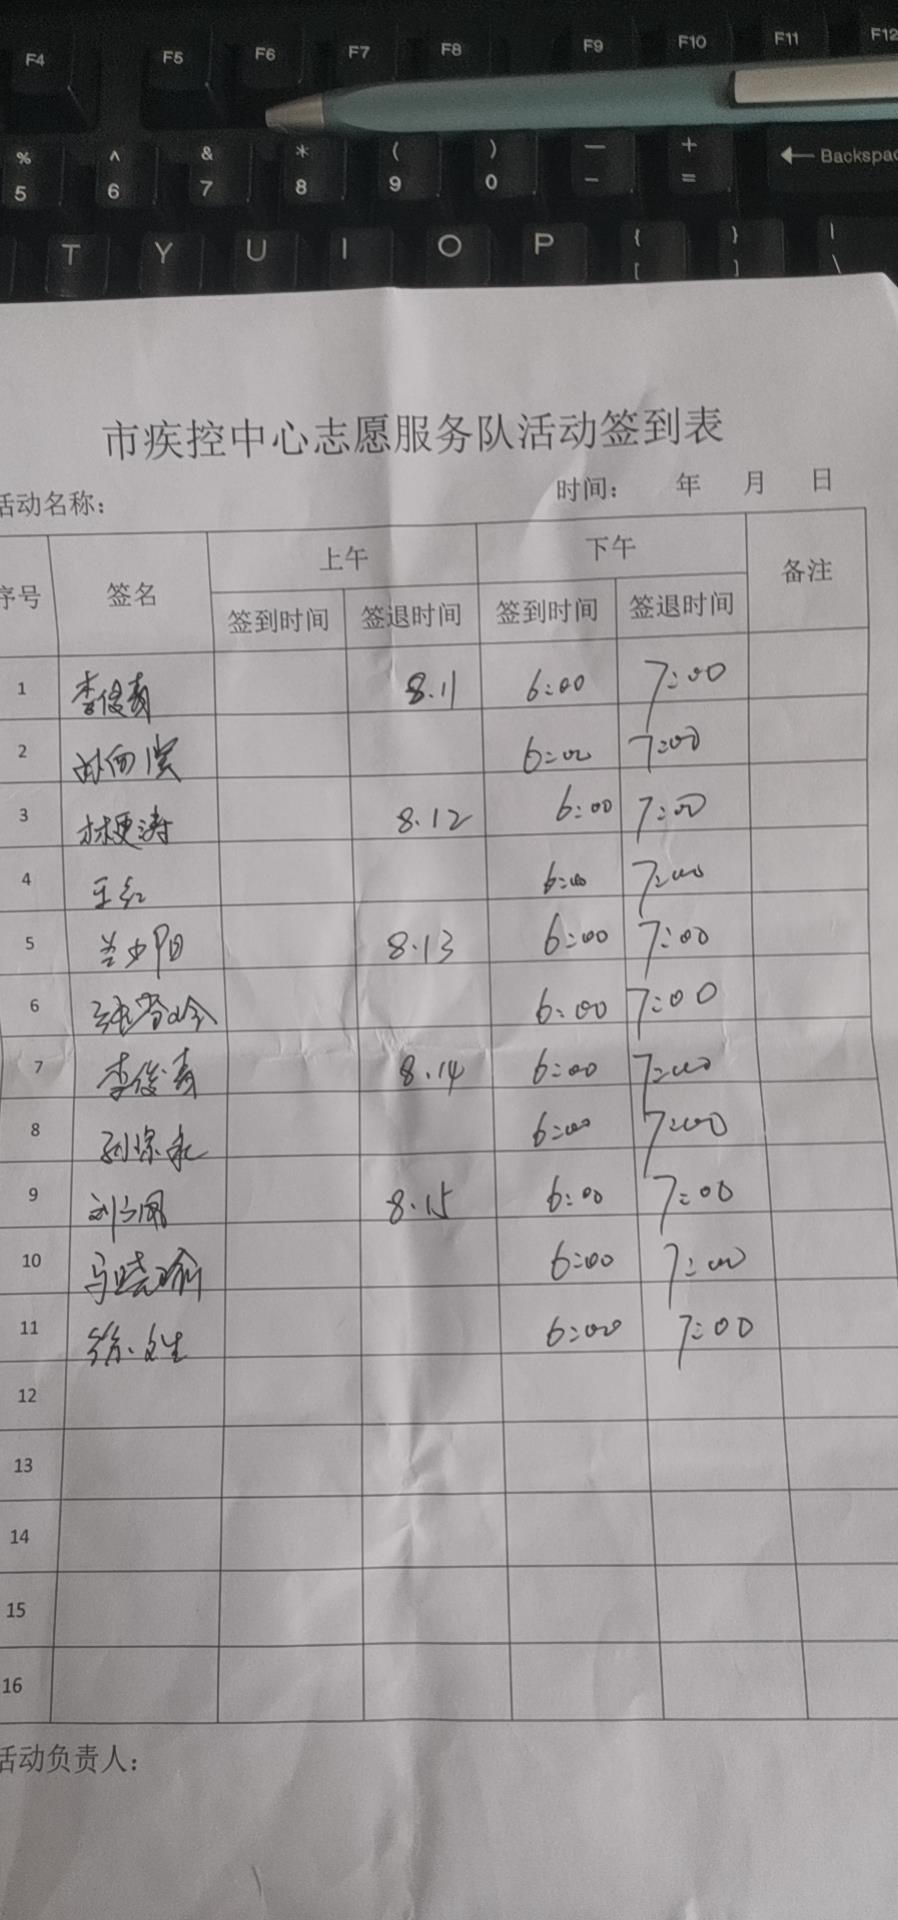 F4 F5 F6 F7 F8 F9 F10 F11 F12
% ^ & * ( ) — +
5 6 7 8 9 0 - = ← Backspac
T Y U I O P { } |
[ ] \
市疾控中心志愿服务队活动签到表
活动名称: 时间: 年 月 日
序号 签名 上午 下午 备注
签到时间 签退时间 签到时间 签退时间
1 李俊青 8.11 6:00 7:00
2 6:00 7:00
3 林梗涛 8.12 6:00 7:00
4 王红 6:00 7:00
5 8.13 6:00 7:00
6 6:00 7:00
7 李俊青 8.14 6:00 7:00
8 6:00 7:00
9 8.15 6:00 7:00
10 马晓瑜 6:00 7:00
11 6:00 7:00
12
13
14
15
16
活动负责人: